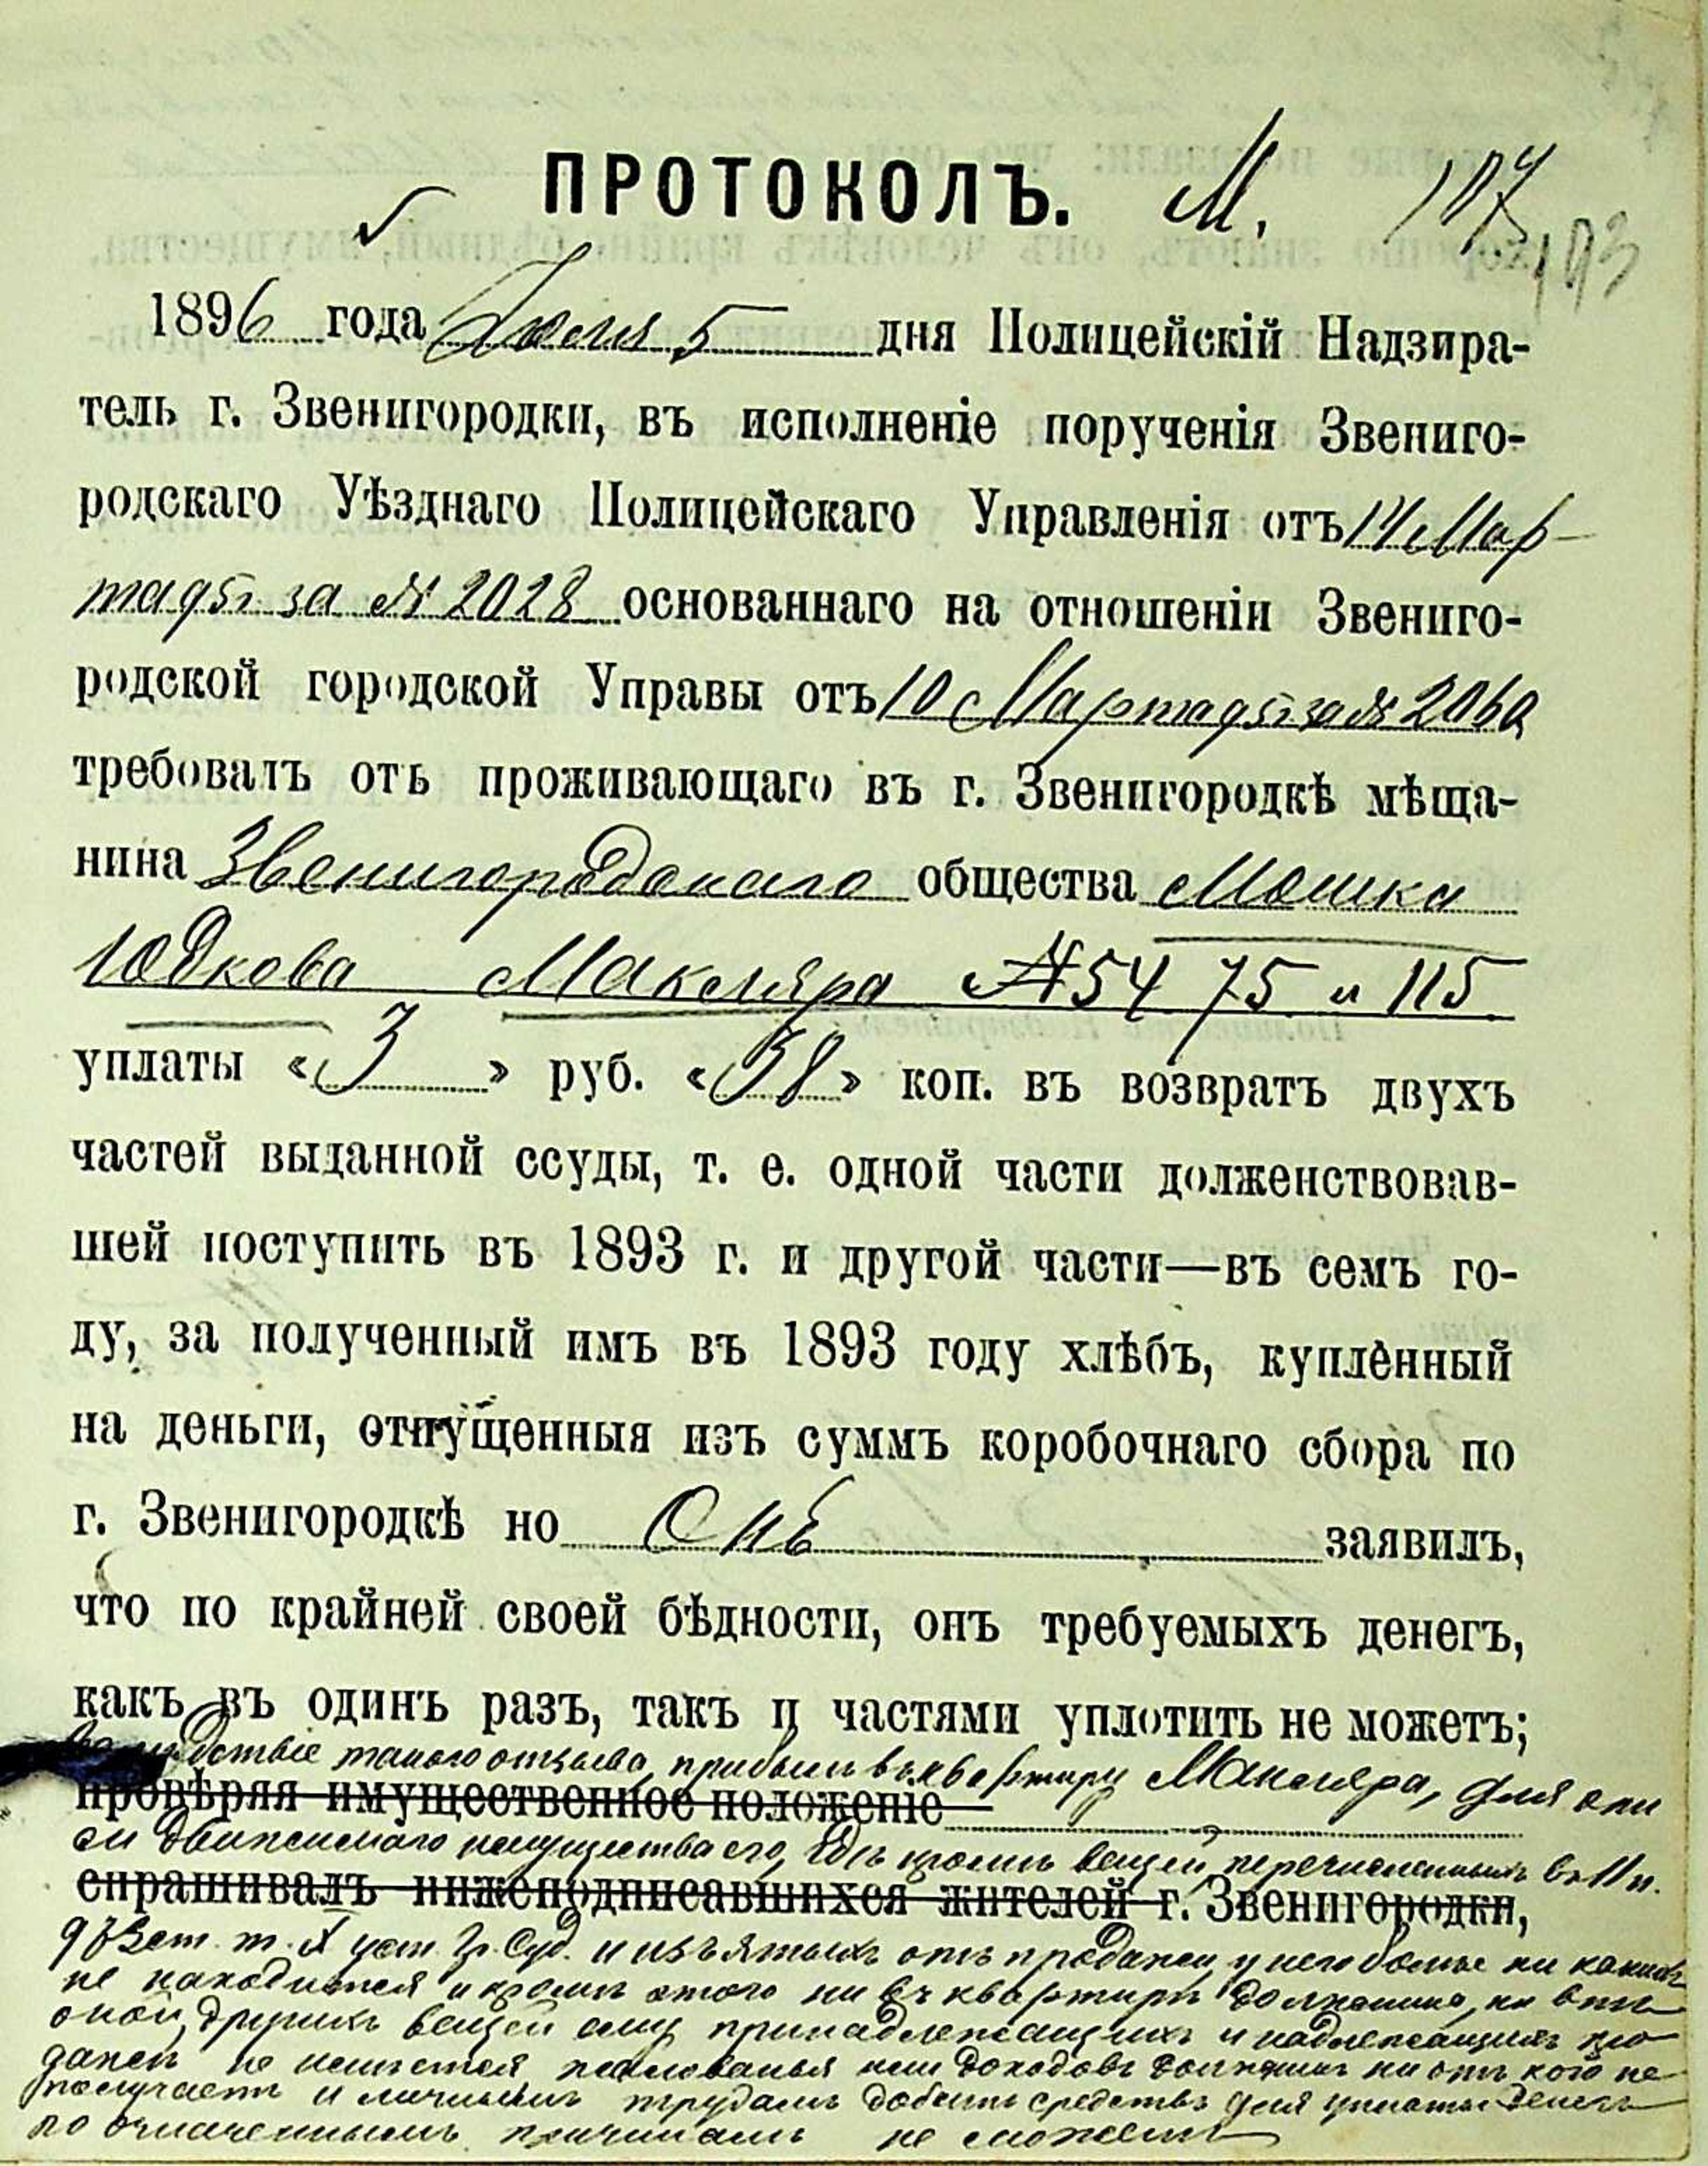 ПРОТОКОЛЪ. М. 107
193
1896 года Іюля 5 дня Полицейскій Надзира-
тель г. Звенигородки, въ исполненіе порученія Звениго-
родскаго Уѣзднаго Полицейскаго Управленія отъ 14 Мар-
та 95г. за № 2028 основаннаго на отношеніи Звениго-
родской городской Управы отъ 10 Марта 95г за № 2060
требовалъ отъ проживающаго въ г. Звенигородкѣ мѣща-
нина Звенигородскаго общества Мошка
Юдкова Макляра № 54 75 и 115
уплаты « 3 » руб. « 38 » коп. въ возвратъ двухъ
частей выданной ссуды, т. е. одной части долженствовав-
шей поступить въ 1893 г. и другой части—въ семъ го-
ду, за полученный имъ въ 1893 году хлѣбъ, купленный
на деньги, отпущенныя изъ суммъ коробочнаго сбора по
г. Звенигородкѣ но Онъ заявилъ,
что по крайней своей бѣдности, онъ требуемыхъ денегъ,
какъ въ одинъ разъ, такъ и частями уплотить не можетъ;
вслѣдствіе такого отзыва, прибылъ въ квартиру Макляра, для опи
провѣряя имущественное положеніе
си движимаго имущества его, гдѣ кромѣ вещей перечисленныхъ въ 11 п.
спрашивалъ нижеподписавшихся жителей г. Звенигородки,
973 ст. т. X уст. Гр. Суд. и изъятыхъ отъ продажи, у него больше ни какихъ
не находится и кромѣ этого ни въ квартирѣ должника, ни внѣ
оной, другихъ вещей ему принадлежащихъ и надлежащихъ про
дажѣ не имѣется жалованья или доходовъ должникъ ни отъ кого не
получаетъ и личнымъ трудамъ добыть средствъ для уплаты денегъ
по означеннымъ причинамъ не можетъ